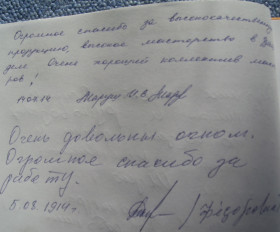 Огромное спасибо за высококачественную
продукцию, высокое мастерство в
деле. Очень хороший коллектив мас
ров!
Очень довольны окном.
Огромное спасибо за
работу.
5.03.1914г